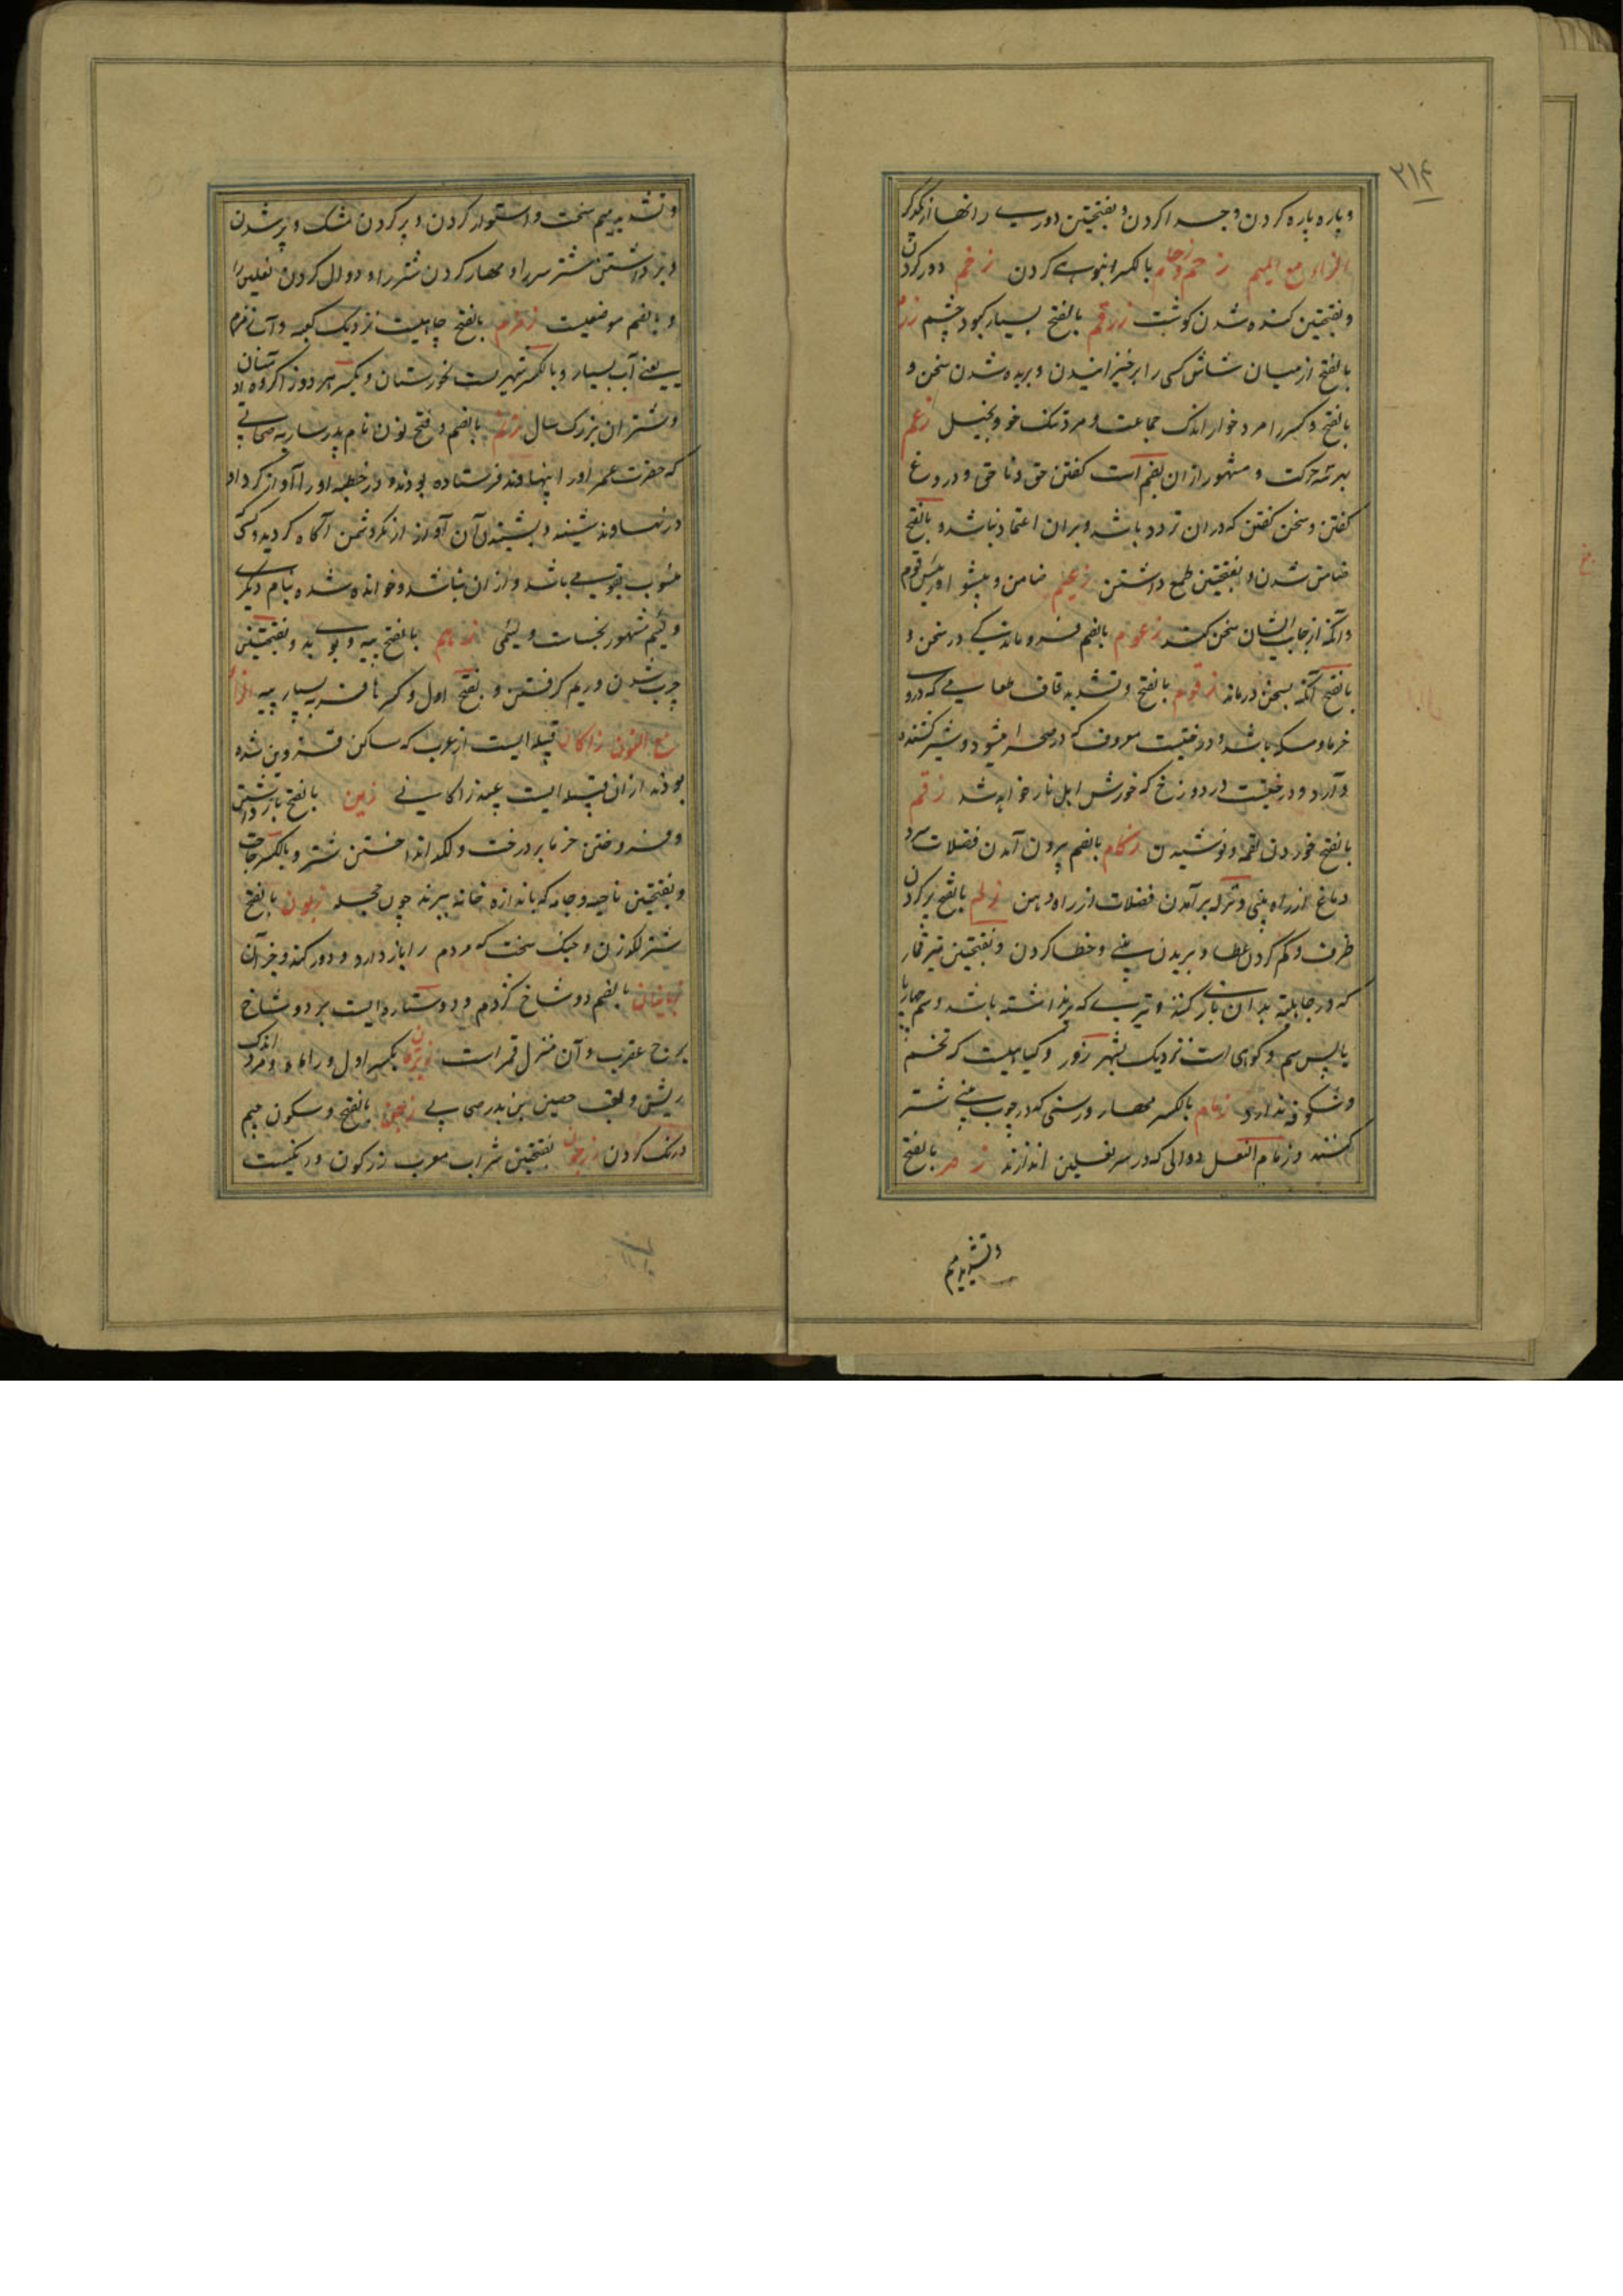 ۲۱۴
و پاره پاره کردن و جدا کردن و بفتحتین دوری رانها از یکدیگر
الزاء مع المیم زحم وزحام بالکسر انبوهی کردن زخم دور کردن
و بفتحتین کنده شدن گوشت زرقم بالفتح بسیار کبود چشم زرم
بالفتح از میان شاش کسی را برخیزانیدن و بریده شدن سخن و
بالفتح و کسر را مرد خوار اندک جماعت و مرد تنک خو و بخیل زعم
بهر سه حرکت و مشهور ازان بضم است گفتن حق و ناحق و دروغ
گفتن و سخن گفتن که دران تردد باشد و بران اعتماد نباشد و بالفتح
ضامن شدن و بفتحتین طمع داشتن زعیم ضامن و پیشوا و رئیس قوم
و آنکه از جانب ایشان سخن کند زعوم بالضم فروماندگی در سخن و
بالفتح آنکه بسخن درماند زقوم بالفتح و تشدید قاف طعامی که دروی
خرما و مسکه باشد و درختیست معروف که در صحرا میشود و شیر کشنده
دارد و درختیست در دوزخ که خورش اهل نار خواهد شد زقم
بالفتح خوردن لقمه و نوشیدن زکام بالضم بیرون آمدن فضلات سرد
دماغ از راه بینی و نزله برآمدن فضلات از راه دهن زلم بالفتح پر کردن
ظرف و کم کردن عطا و بریدن بینی و خطا کردن و بفتحتین تیر قمار
که در جاهلیة بدان بازی کنند و تیری که پر نداشته باشد و سم چارپا
یا پس سم و کوهی است نزدیک بشهر زور و گیاهیست که تخم
و شکوفه ندارد زمام بالکسر مهار و رسنی که در چوب بینی شتر
کنند و زمام النعل دوالی که در سر نعلین اندازند زم بالفتح
و تشدید میم
و تشدید میم سخت و استوار کردن و پر کردن مشک و پر شدن
و برداشتن شتر سر را و مهار کردن شتر را و دوال کردن نعلین را
و بالضم موضعیست زمزم بالفتح چاهیست نزدیک کعبه و آب زمزم
یعنی آب بسیار و بالکسر شهریست بخورستان و بکسر هر دو زا گروه آدمیان
و شتران بزرگ سال زنیم بالضم و فتح نون نام پدر ساریه صحابی
که حضرت عمر او را بنهاوند فرستاده بودند و در خطبه او را آواز کرد او
در نهاوند شنید و بشنیدن آن آواز از مکر دشمن آگاه گردید و کسی
منسوب بقومی باشد و ازان نباشد و خوانده شده بنام دیگری
و لئیم مشهور بخساست و لئیمی زهم بالفتح پیه و بوی بد و بفتحتین
چرب شدن و ریم گرفتن و بفتح اول و کسر ها فربه بسیار پیه الزاء
مع النون زاکان قبیله ایست از عرب که ساکن قزوین شده
بودند ازان قبیله ایست عبید زاکانی زبن بالفتح بازداشتن
و فروختن خرما بر درخت و لکد انداختن شتر و بالکسر حاجت
و بفتحتین ناحیه و جامه که باندازه خانه ببرند چون حجله زبون بالفتح
شتر لکدزن و جنک سخت که مردم را باز دارد و دور کند و خر آن
زبانیان بالضم دو شاخ کژدم و دو ستاره ایست بر دو شاخ
برج عقرب و آن منزل قمر است زبرقان بکسر اول و را ماه و مرد اندک
ریش و لقب حصین بن بدر صحابی زجن بالفتح و سکون جیم
درنک کردن زرجون بفتحتین شراب معرب زرکون و رنگیست